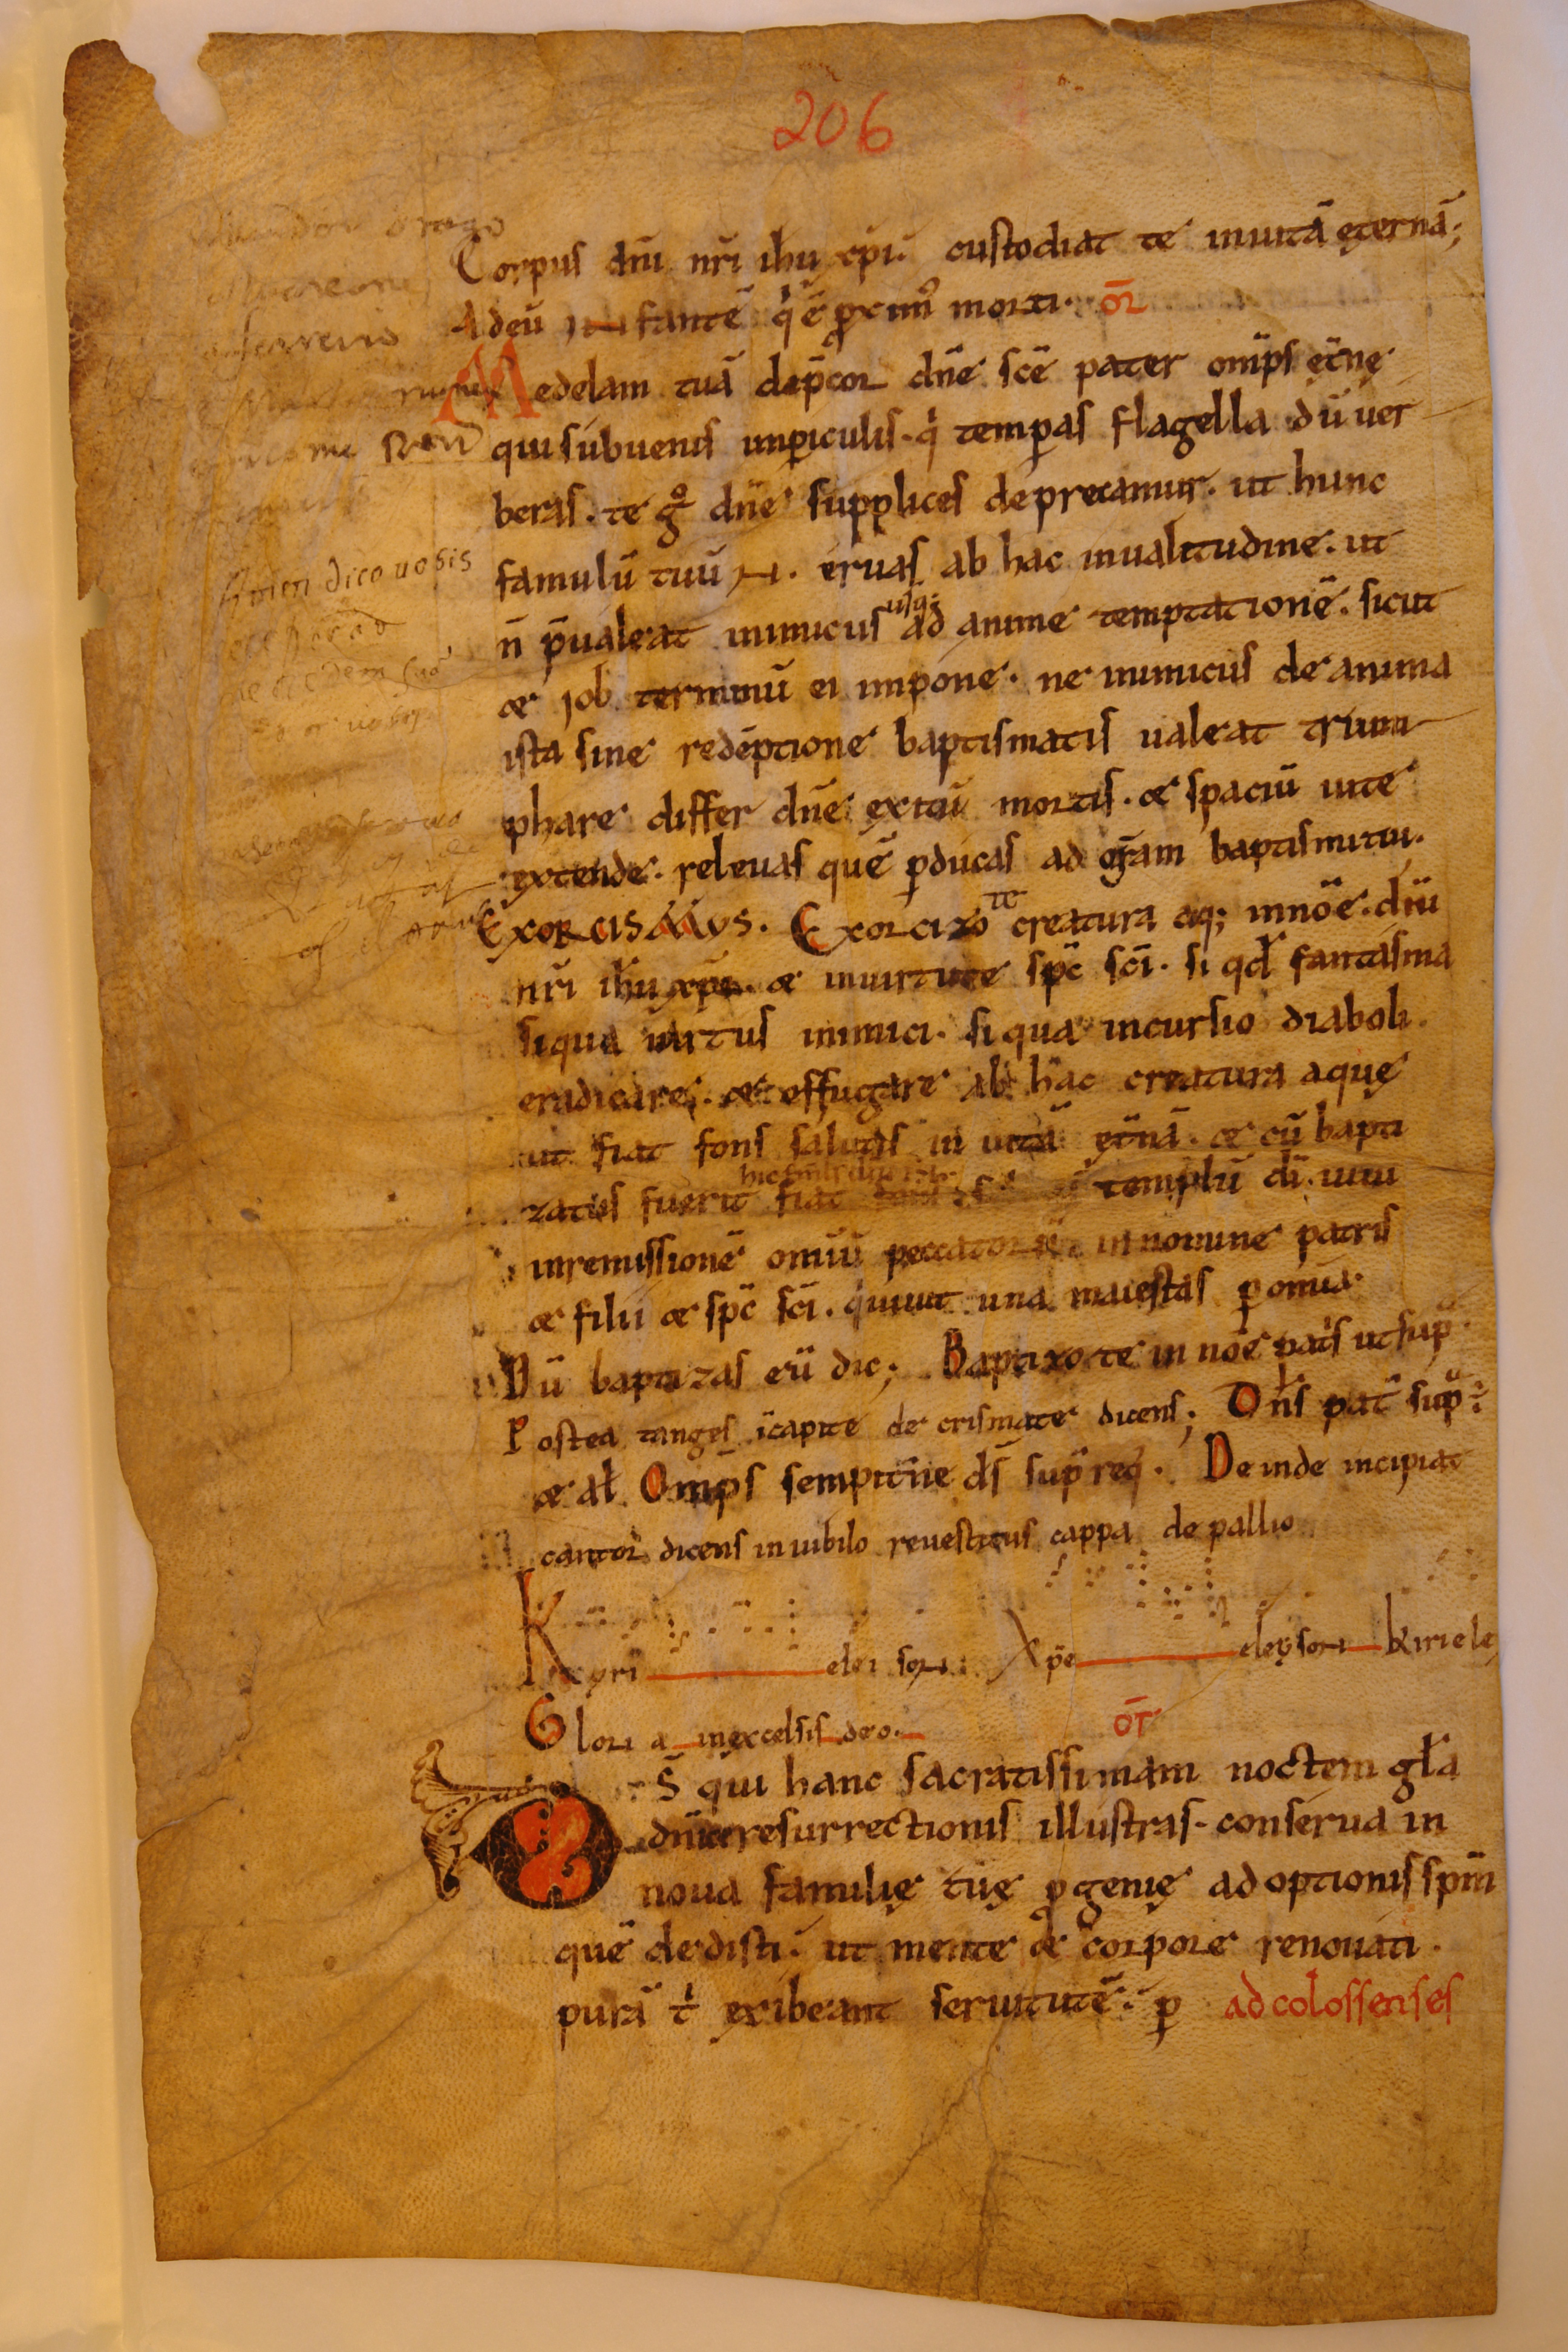 206
Corpus dñi nr̃i ihu xpi. custodiat te inuitã ęternã;
Ad eũ infantẽ q̇ ẽ ꝓximꝰ morti. or̃
Medelam tuã dep̃cor dñe sc̃e pater om̃ps et̃nę
qui subuenis inꝑiculis. q̇ temꝑas flagella dũ uer
beras. te gͦ dñe supplices deprecamur. ut hunc
famulũ tuũ N. eruas ab hac inualitudine. ut
ñ p̃ualeat inimicus usq; ad anime temptationẽ. sicut
& job terminũ ei impone. ne inimicus de anima
ista sine redẽptione baptismatis ualeat trium
phare differ dñe exitũ mortis. & spaciũ uite
extende. releuas quẽ ꝑducas ad gr̃am baptismi tui.
Exorcismus. Exorcizo te creatura aq; innoẽ. dñi
nr̃i ihu xpi. & inuirtute spc̃ sc̃i. si qđ fantasma
siqua uirtus inimici. si qua incursio diaboli.
eradicare. & effugare ab hac creatura aquę
ut fiat fons salutis in uitã et̃nã. & cũ bapti
zatus fuerit fiat templũ dĩ uiui
inremissionẽ omĩũ peccatorũ in nomine patris
& filii & spc̃ sc̃i. q̇ uiuit una maiestas ꝑ omĩa
Dũ baptizas eũ dic; Baptixo te in noẽ pat̃s ut sup̃
Postea tanges ĩcapite de crismate dicens; Dñs pat̃ sup̃
& at Omp̃s sempit̃ne ds̃ sup̃ req̃. Deinde incipiat
cantor dicens in iubilo reuestitus cappa de pallio
Kyri elei son. Xpe eleyson Kiriele
Glori a inexcelsis deo. or̃
Ds̃ qui hanc sacratissimam noctem gła
dñice resurrectionis illustras. conserua in
noua familię tuę ꝓgenię adoptionis spm̃
quẽ dedisti. ut mente & corpore renouati.
purã t̓ exibeant seruitutẽ. ꝑ ad colossenses
Amen dico uobis